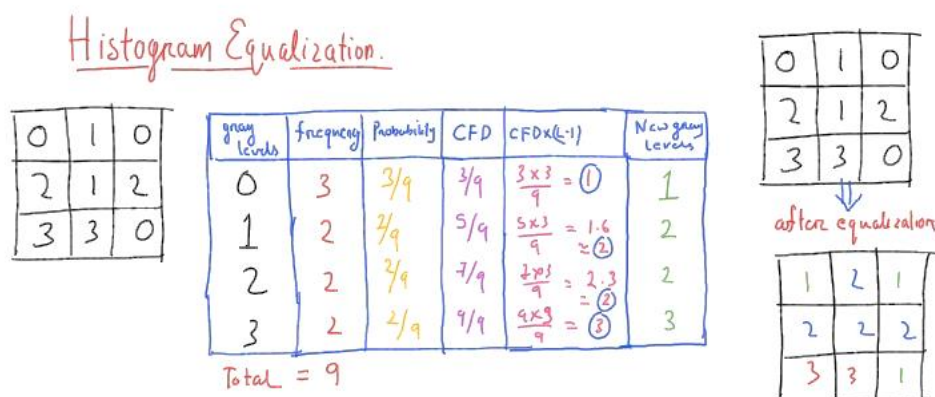 Histogram Equalization.
0 1 0
2 1 2
3 3 0
gray levels frequency Probability CFD CFD×(L-1) New gray levels
0 3 3/9 3/9 3×3/9 = 1 1
1 2 2/9 5/9 5×3/9 = 1.6 ≈ 2 2
2 2 2/9 7/9 7×3/9 = 2.3 = 2 2
3 2 2/9 9/9 9×3/9 = 3 3
Total = 9
0 1 0
2 1 2
3 3 0
after equalization
1 2 1
2 2 2
3 3 1